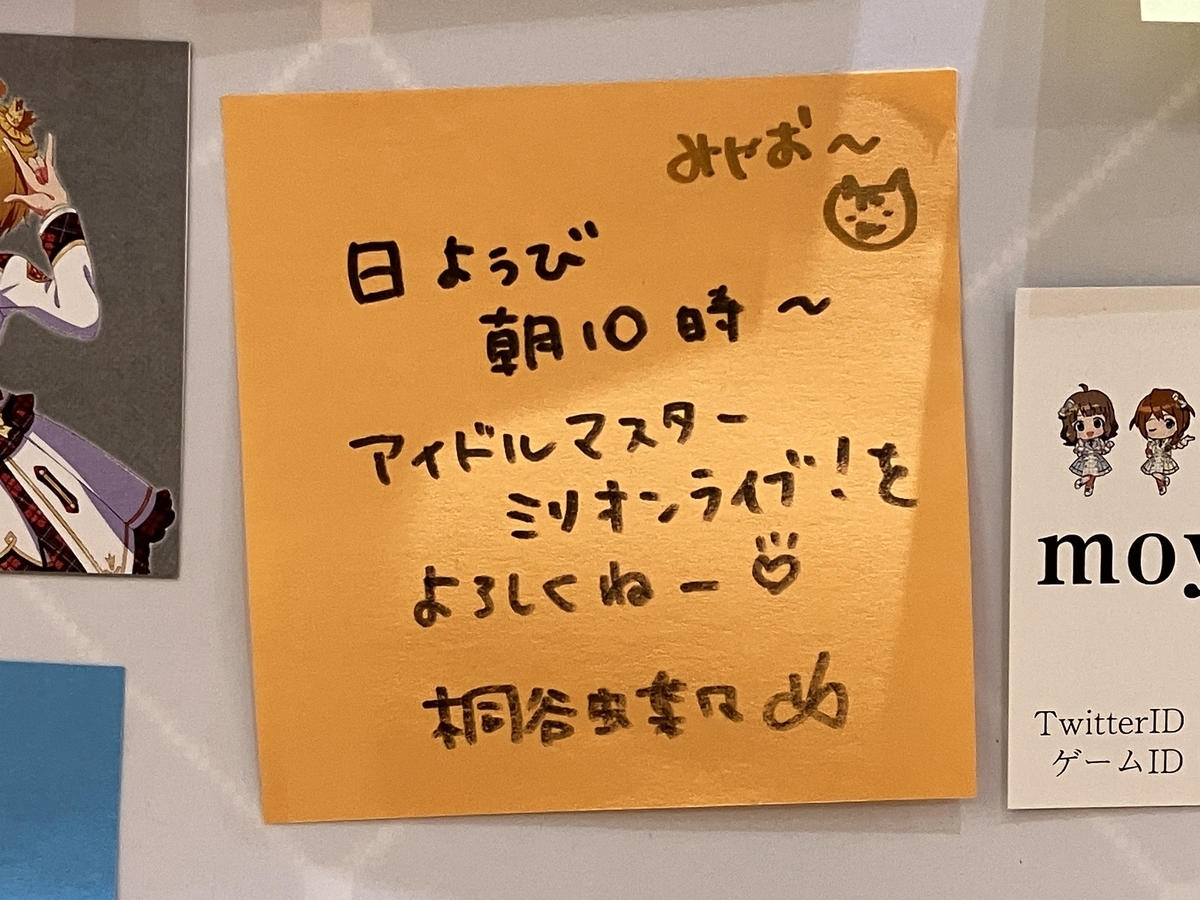 みやお〜
日ようび
朝10時〜
アイドルマスター
ミリオンライブ!を
よろしくねー
桐谷蝶々
moy
TwitterID
ゲームID